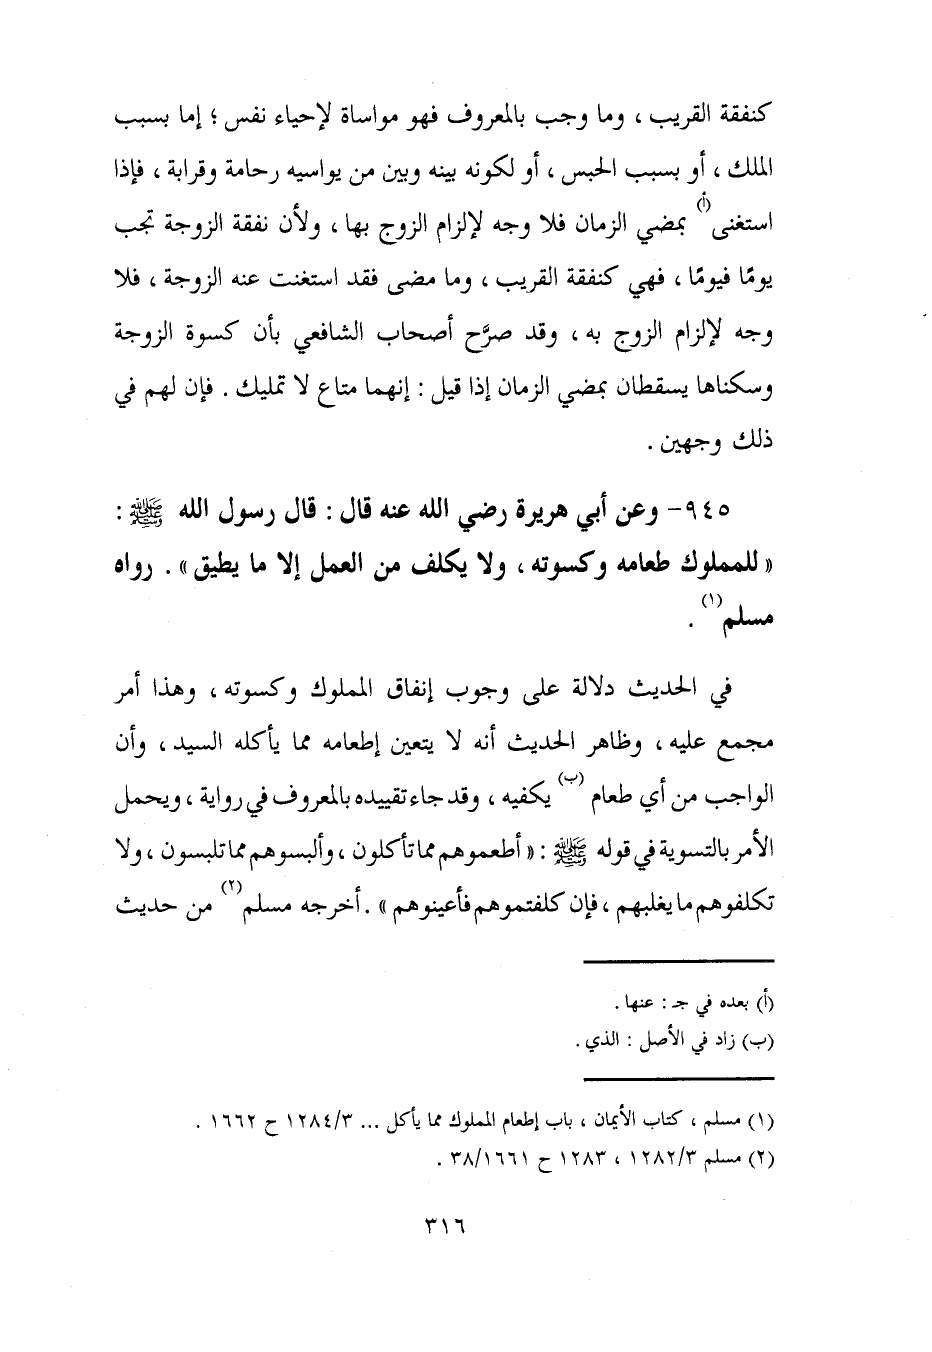 كنفقة القريب ، وما وجب بالمعروف فهو مواساة لإحياء نفس ؛ إما بسبب
الملك ، أو بسبب الحبس ، أو لكونه بينه وبين من يواسيه رحامة وقرابة ، فإذا
استغنى(أ) بمضي الزمان فلا وجه لإلزام الزوج بها ، ولأن نفقة الزوجة تجب
يومًا فيومًا ، فهي كنفقة القريب ، وما مضى فقد استغنت عنه الزوجة ، فلا
وجه لإلزام الزوج به ، وقد صرَّح أصحاب الشافعي بأن كسوة الزوجة
وسكناها يسقطان بمضي الزمان إذا قيل : إنهما متاع لا تمليك . فإن لهم في
ذلك وجهين .
٩٤٥- وعن أبي هريرة رضي الله عنه قال : قال رسول الله ﷺ :
« للمملوك طعامه وكسوته ، ولا يكلف من العمل إلا ما يطيق » . رواه
مسلم(١) .
في الحديث دلالة على وجوب إنفاق المملوك وكسوته ، وهذا أمر
مجمع عليه ، وظاهر الحديث أنه لا يتعين إطعامه مما يأكله السيد ، وأن
الواجب من أي طعام (ب) يكفيه ، وقد جاء تقييده بالمعروف في رواية ، ويحمل
الأمر بالتسوية في قوله ﷺ : « أطعموهم مما تأكلون ، وألبسوهم مما تلبسون ، ولا
تكلفوهم ما يغلبهم ، فإن كلفتموهم فأعينوهم » . أخرجه مسلم(٢) من حديث
(أ) بعده في جـ : عنها .
(ب) زاد في الأصل : الذي .
(١) مسلم ، كتاب الأيمان ، باب إطعام المملوك مما يأكل ... ١٢٨٤/٣ ح ١٦٦٢ .
(٢) مسلم ١٢٨٢/٣ ، ١٢٨٣ ح ٣٨/١٦٦١ .
٣١٦